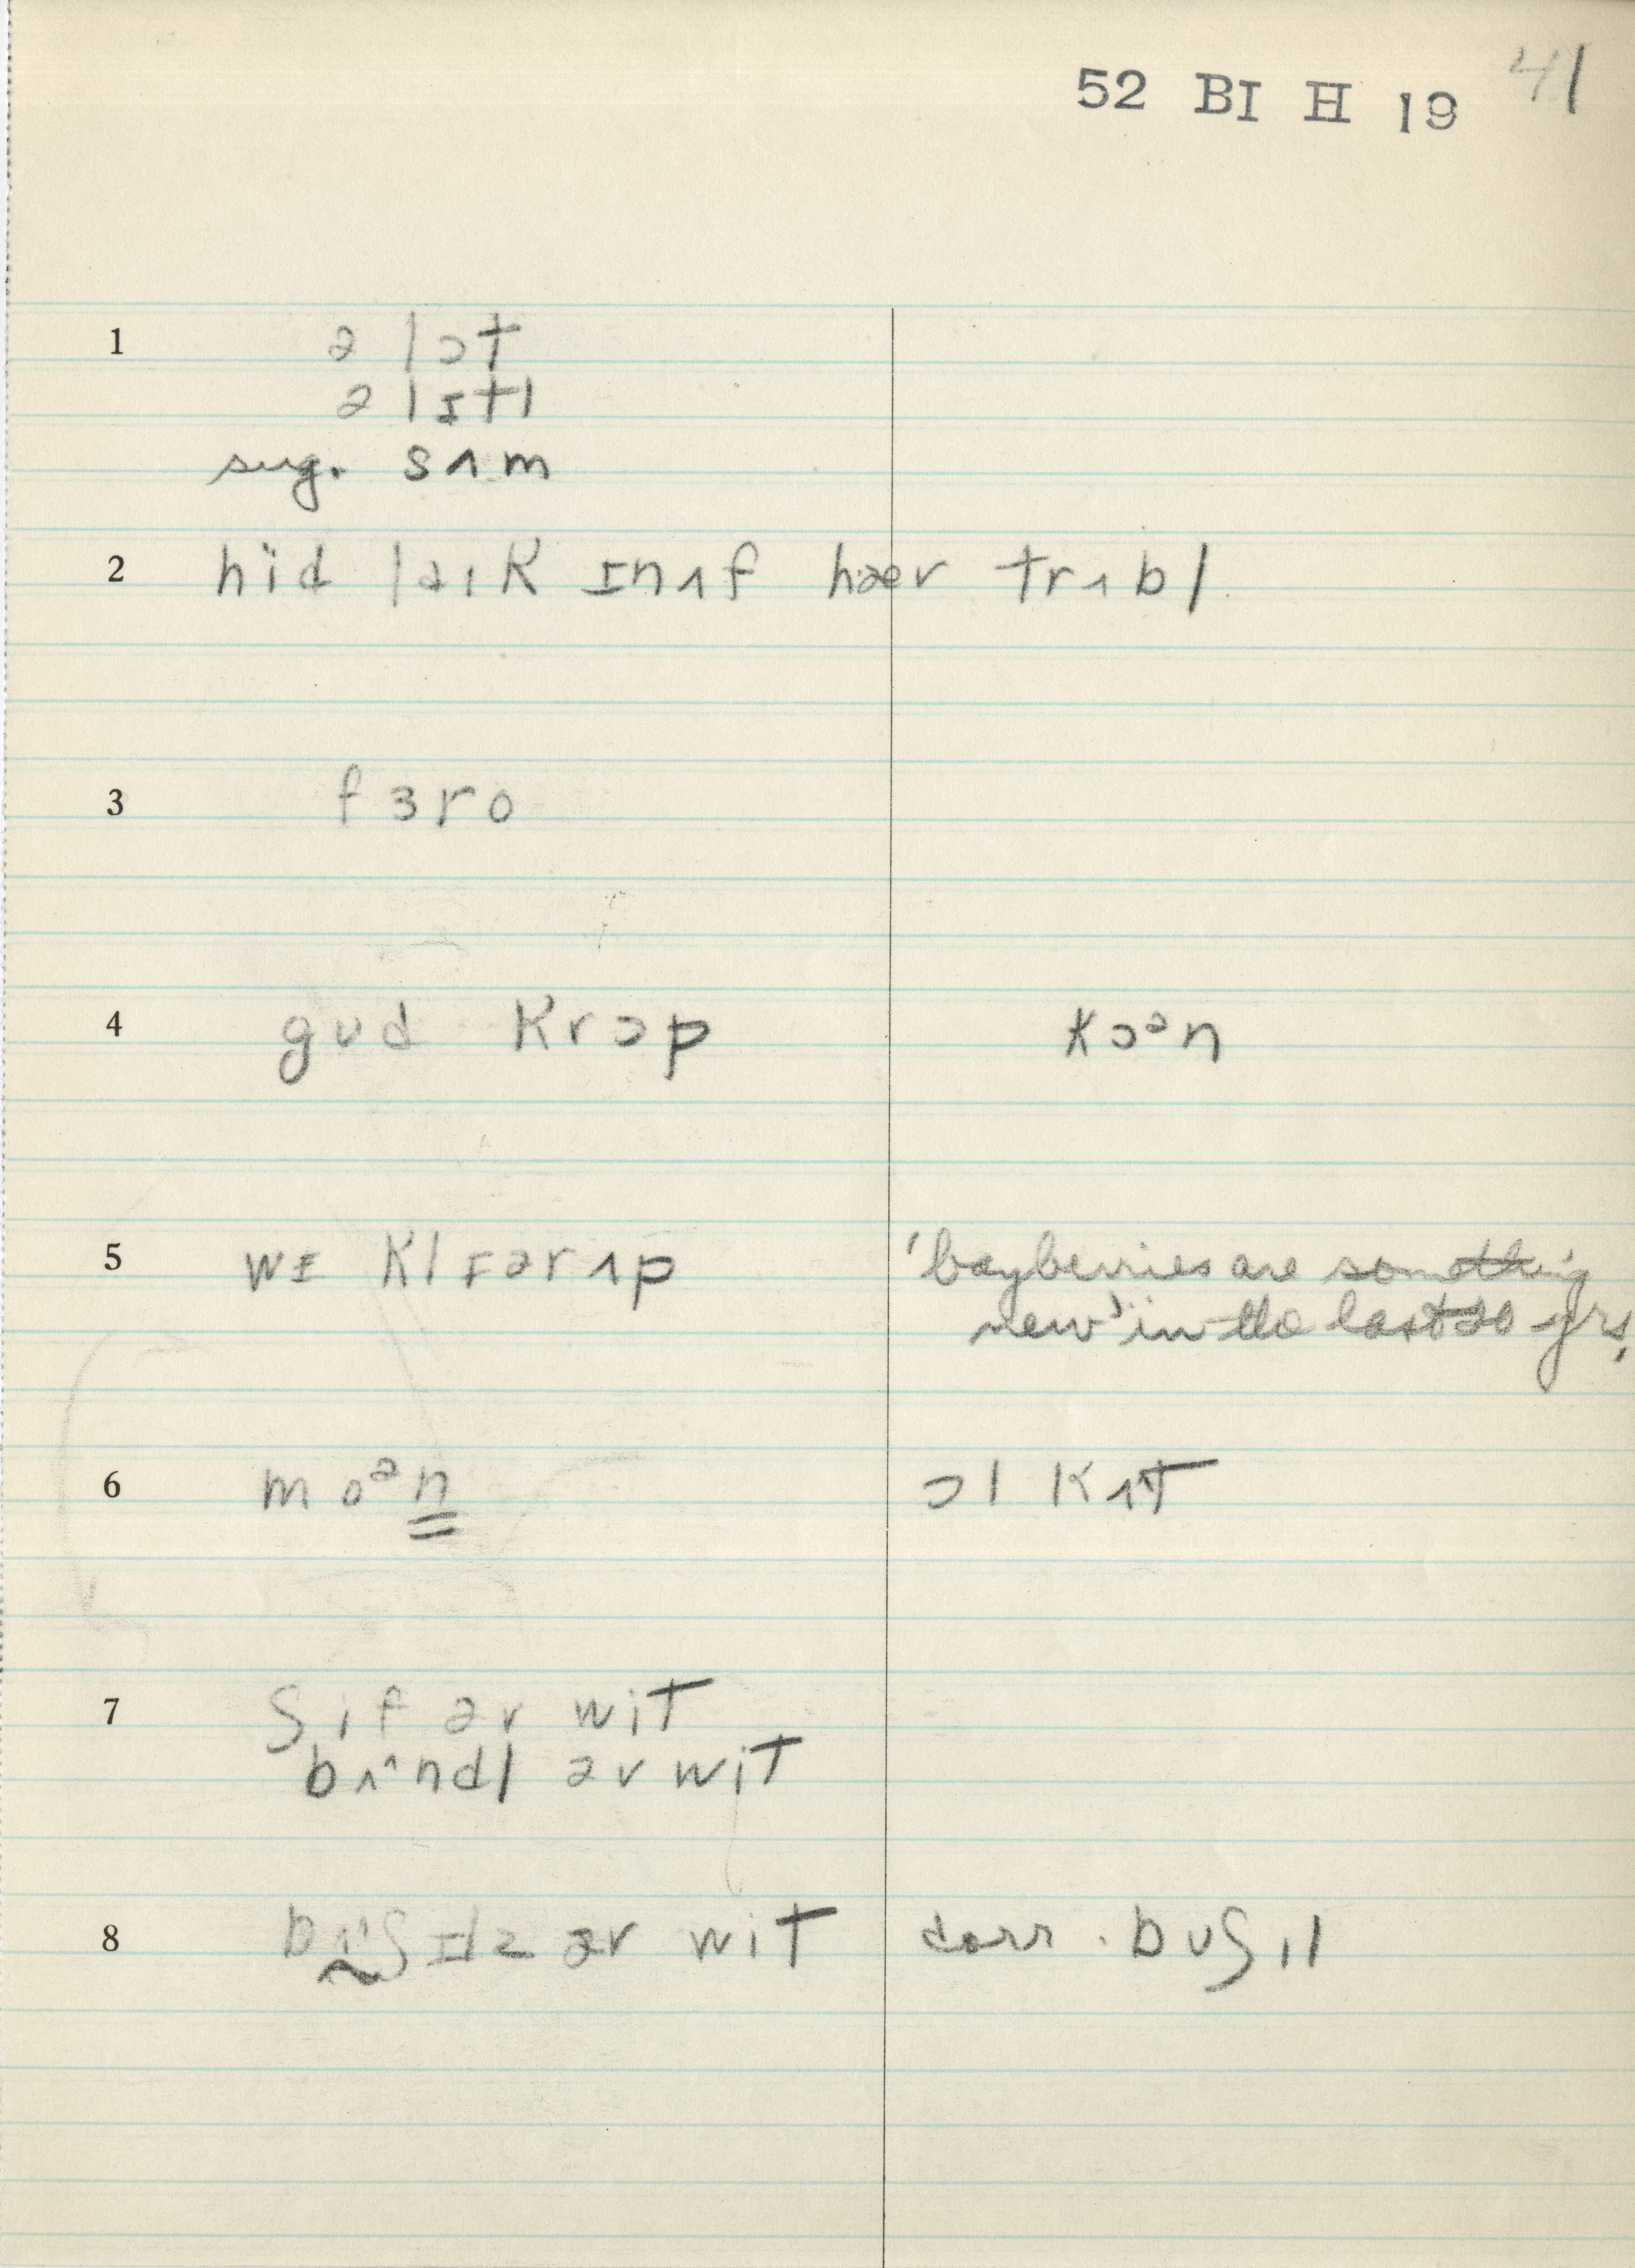 52 BI H 19 41
1 ə lɔt
ə lɪtl
sug. sʌm
2 hïd laɪk ɪnʌf hæv trʌbl
3 fɜro
4 gʊd krɔp kɔᵊn
5 wɪ klɪər ʌp 'bayberries are something
new' in the last 20 yrs.
6 moᵊn ɔl kʌt
7 ʃif əv wit
bʌ^ndl əv wit
8 bʌ^ʃɪlz əv wit corr. bʊʃɪl